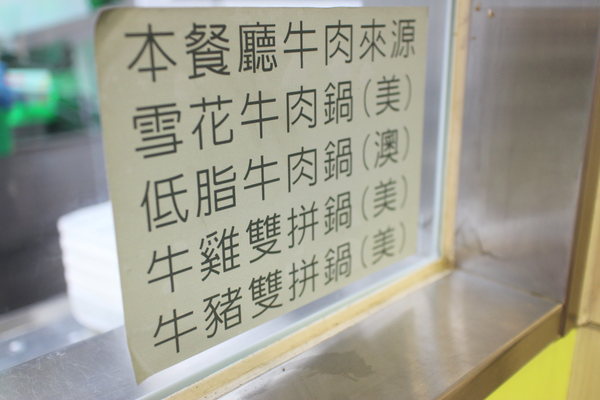 本餐廳牛肉來源
雪花牛肉鍋(美)
低脂牛肉鍋(澳)
牛雞雙拼鍋(美)
牛豬雙拼鍋(美)